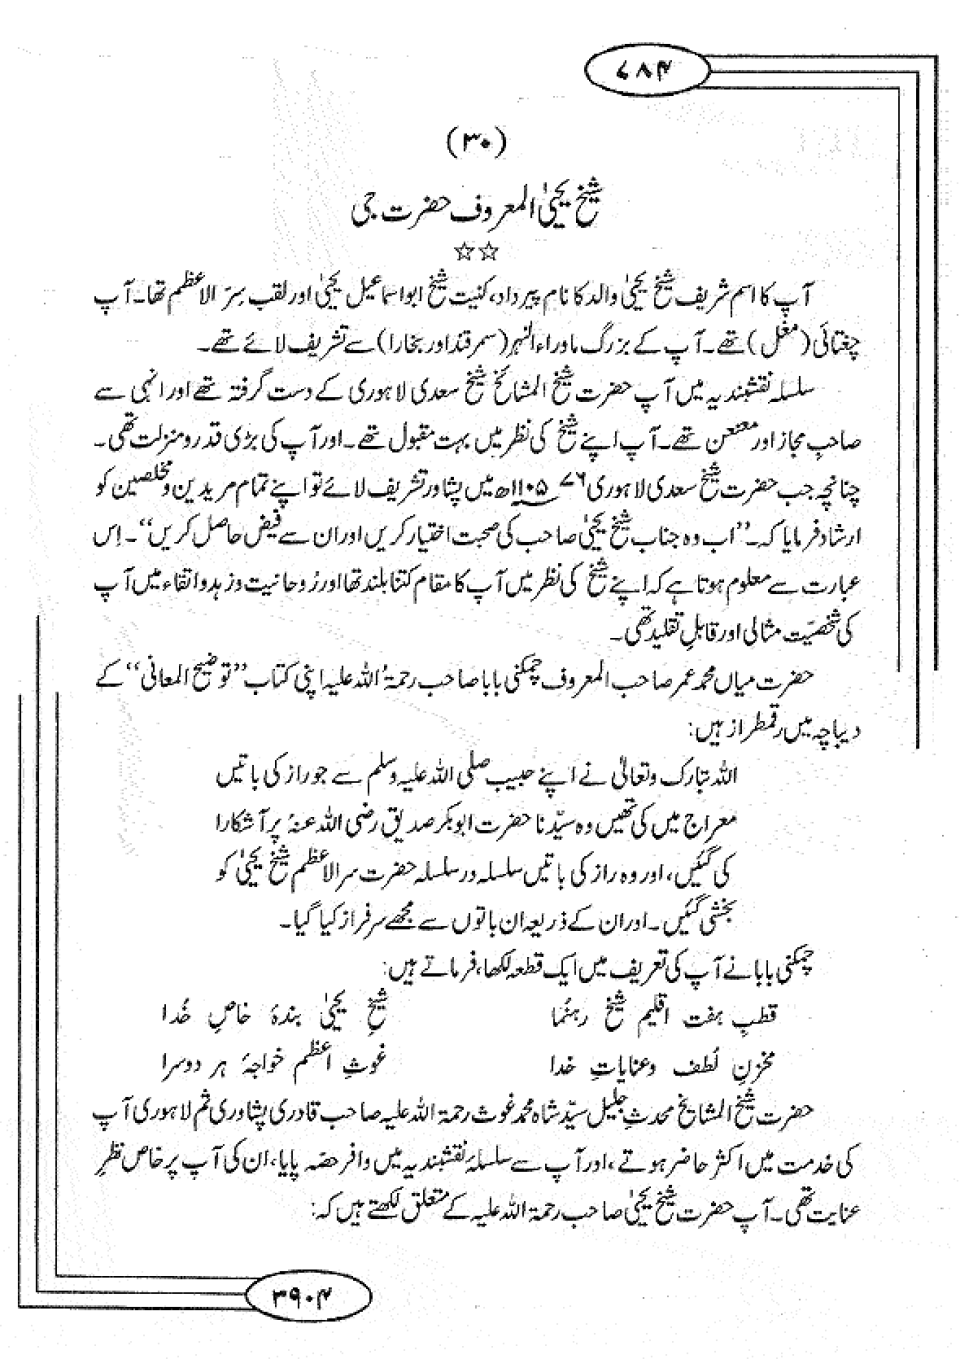 ۷۸۴
(۳۰)
شیخ یحییٰ المعروف حضرت جی
☆☆
آپ کا اسم شریف شیخ یحییٰ والد کا نام پیر داد، کنیت شیخ ابو اسماعیل یحییٰ اور لقب سِرّ الاعظم تھا۔ آپ
چغتائی (مغل) تھے۔ آپ کے بزرگ ماوراء النہر (سمرقند اور بخارا) سے تشریف لائے تھے۔
سلسلہ نقشبندیہ میں آپ حضرت شیخ المشائخ شیخ سعدی لاہوری کے دست گرفتہ تھے اور انہی سے
صاحبِ مجاز اور معنعن تھے۔ آپ اپنے شیخ کی نظر میں بہت مقبول تھے۔ اور آپ کی بڑی قدر و منزلت تھی۔
چنانچہ جب حضرت شیخ سعدی لاہوری ۷۶ ۱۱۰۵ھ میں پشاور تشریف لائے تو اپنے تمام مریدین و مخلصین کو
ارشاد فرمایا کہ۔ ’’اب وہ جناب شیخ یحییٰ صاحب کی صحبت اختیار کریں اور ان سے فیض حاصل کریں‘‘۔ اِس
عبارت سے معلوم ہوتا ہے کہ اپنے شیخ کی نظر میں آپ کا مقام کتنا بلند تھا اور رُوحانیت و زہد و اتقاء میں آپ
کی شخصیّت مثالی اور قابلِ تقلید تھی۔
حضرت میاں محمد عمر صاحب المعروف چمکنی بابا صاحب رحمۃُ اللہ علیہ اپنی کتاب ’’توضیح المعانی‘‘ کے
دیباچہ میں رقمطراز ہیں:
اللہ تبارک و تعالیٰ نے اپنے حبیب صلی اللہ علیہ وسلم سے جو راز کی باتیں
معراج میں کی تھیں وہ سیّدنا حضرت ابوبکر صدیق رضی اللہ عنہٗ پر آشکارا
کی گئیں، اور وہ راز کی باتیں سلسلہ در سلسلہ حضرت سر الاعظم شیخ یحییٰ کو
بخشی گئیں۔ اور ان کے ذریعہ ان باتوں سے مجھے سرفراز کیا گیا۔
چمکنی بابا نے آپ کی تعریف میں ایک قطعہ لکھا، فرماتے ہیں:
قطبِ ہفت اقلیم شیخ رہنُما شیخِ یحییٰ بندۂ خاصِ خُدا
مخزنِ لُطف و عنایاتِ خدا غوثِ اعظم خواجۂ ہر دوسرا
حضرت شیخ المشایخ محدثِ جلیل سیّد شاہ محمد غوث رحمۃ اللہ علیہ صاحب قادری پشاوری ثم لاہوری آپ
کی خدمت میں اکثر حاضر ہوتے، اور آپ سے سلسلۂ نقشبندیہ میں وافر حصّہ پایا، ان کی آپ پر خاص نظرِ
عنایت تھی۔ آپ حضرت شیخ یحییٰ صاحب رحمۃ اللہ علیہ کے متعلق لکھتے ہیں کہ:
۳۹۰۴